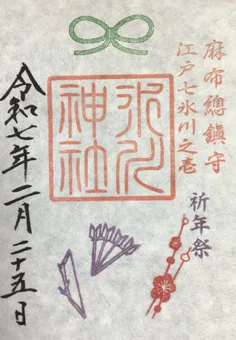 麻布總鎮守
江戸七氷川之壱
氷川神社
祈年祭
令和七年二月二十五日